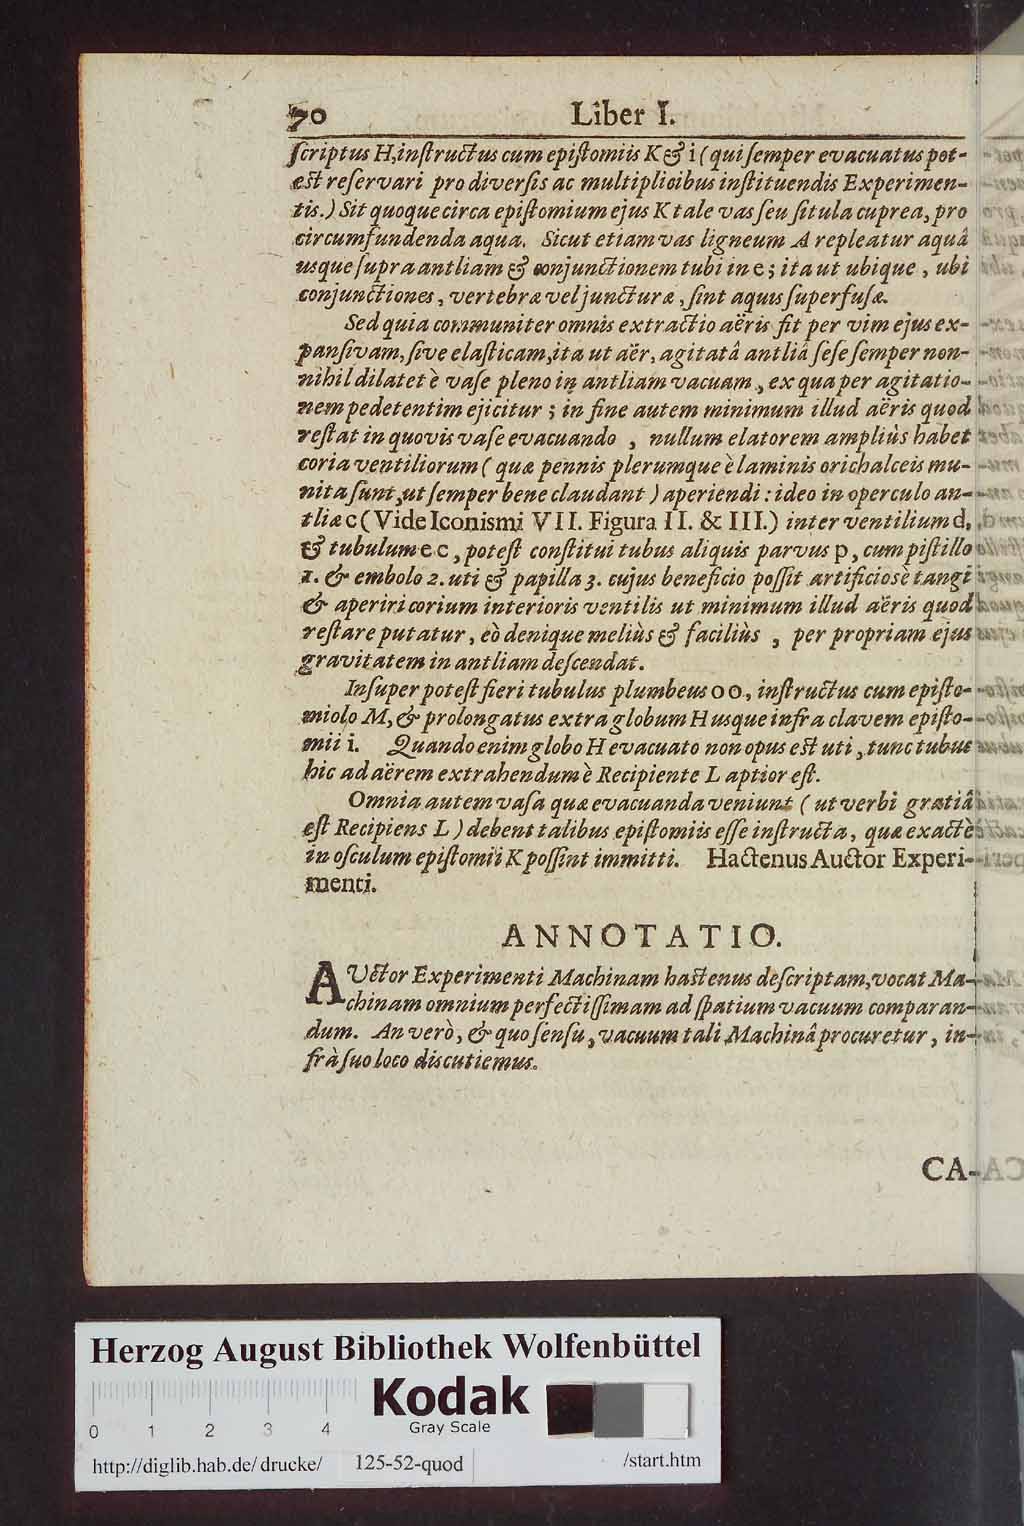 70 Liber I.
ſcriptus H, inſtructus cum epiſtomiis K & i (qui ſemper evacuatus pot-
est reſervari pro diverſis ac multiplicibus inſtituendis Experimen-
tis.) Sit quoque circa epiſtomium ejus K tale vas ſeu ſitula cuprea, pro
circumfundenda aqua. Sicut etiam vas ligneum A repleatur aquâ
usque ſupra antliam & conjunctionem tubi in e; ita ut ubique, ubi
conjunctiones, vertebræ vel juncturæ, ſint aquis ſuperfuſæ.
Sed quia communiter omnis extractio aëris fit per vim ejus ex-
panſivam, ſive elaſticam, ita ut aër, agitatâ antliâ ſeſe ſemper non-
nihil dilatet è vaſe pleno in antliam vacuam, ex qua per agitatio-
nem pedetentim ejicitur; in fine autem minimum illud aëris quod
reſtat in quovis vaſe evacuando, nullum elatorem ampliùs habet
coria ventiliorum (quæ pennis plerumque è laminis orichalceis mu-
nita ſunt, ut ſemper bene claudant) aperiendi: ideo in operculo an-
tliæ c (Vide Iconismi VII. Figura II. & III.) inter ventilium d,
& tubulum e c, poteſt conſtitui tubus aliquis parvus p, cum piſtillo
1. & embolo 2. uti & papilla 3. cujus beneficio poſſit artificiosè tangi
& aperiri corium interioris ventilis ut minimum illud aëris quod
reſtare putatur, eò denique meliùs & faciliùs, per propriam ejus
gravitatem in antliam deſcendat.
Inſuper poteſt fieri tubulus plumbeus oo, inſtructus cum epiſto-
miolo M, & prolongatus extra globum H usque infra clavem epiſto-
mii i. Quando enim globo H evacuato non opus est uti, tunc tubus
hic ad aërem extrahendum è Recipiente L aptior eſt.
Omnia autem vaſa quæ evacuanda veniunt (ut verbi gratiâ
eſt Recipiens L) debent talibus epiſtomiis eſſe inſtructa, quæ exactè
in oſculum epiſtomii K poſſint immitti. Hactenus Auctor Experi-
menti.
ANNOTATIO.
AUctor Experimenti Machinam hactenus deſcriptam, vocat Ma-
chinam omnium perfectiſſimam ad ſpatium vacuum comparan-
dum. An verò, & quo ſenſu, vacuum tali Machinâ procuretur, in-
frà ſuo loco discutiemus.
CA-
Herzog August Bibliothek Wolfenbüttel
Kodak
Gray Scale
0 1 2 3 4
http://diglib.hab.de/drucke/ 125-52-quod /start.htm